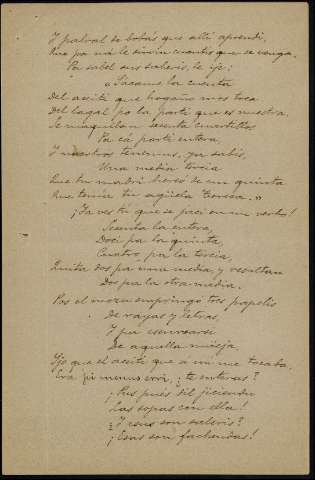 Y palral de bobás que allí aprendi,
Que pa ná le sirvin cuantis que se venga.
Pa sabel sus saberis, le ije:
«Sácame la cuenta
Del aceiti que hogaño mos toca
Del lagal po la parti que es nuestra.
Se maquilan sesenta cuartillos
Pa cá parti entera,
Y nosotros tenemos, ya sabis,
Una media tercia
Que tu madri heredó de una quinta
Que tenía tu agüela Teresa.»
¡Ya ves tú que se jaci en un verbo!
Sesenta la entera,
Doci pa la quinta,
Cuatro, pa la tercia,
Quita dos pa una media, y resultan
Dos pa la otra media.
Pos el mozu empringó tres papelis
De rayas y letras,
Y pa esenrearsi
De aquella maeja
Ijo que el aceiti que a mí me tocaba
Era pi menus erri, ¿te enteras?
¡Pus pués dil jiciendu
Las sopas con ella!
¿Y esus son saberis?
¡Esas son fachendas!